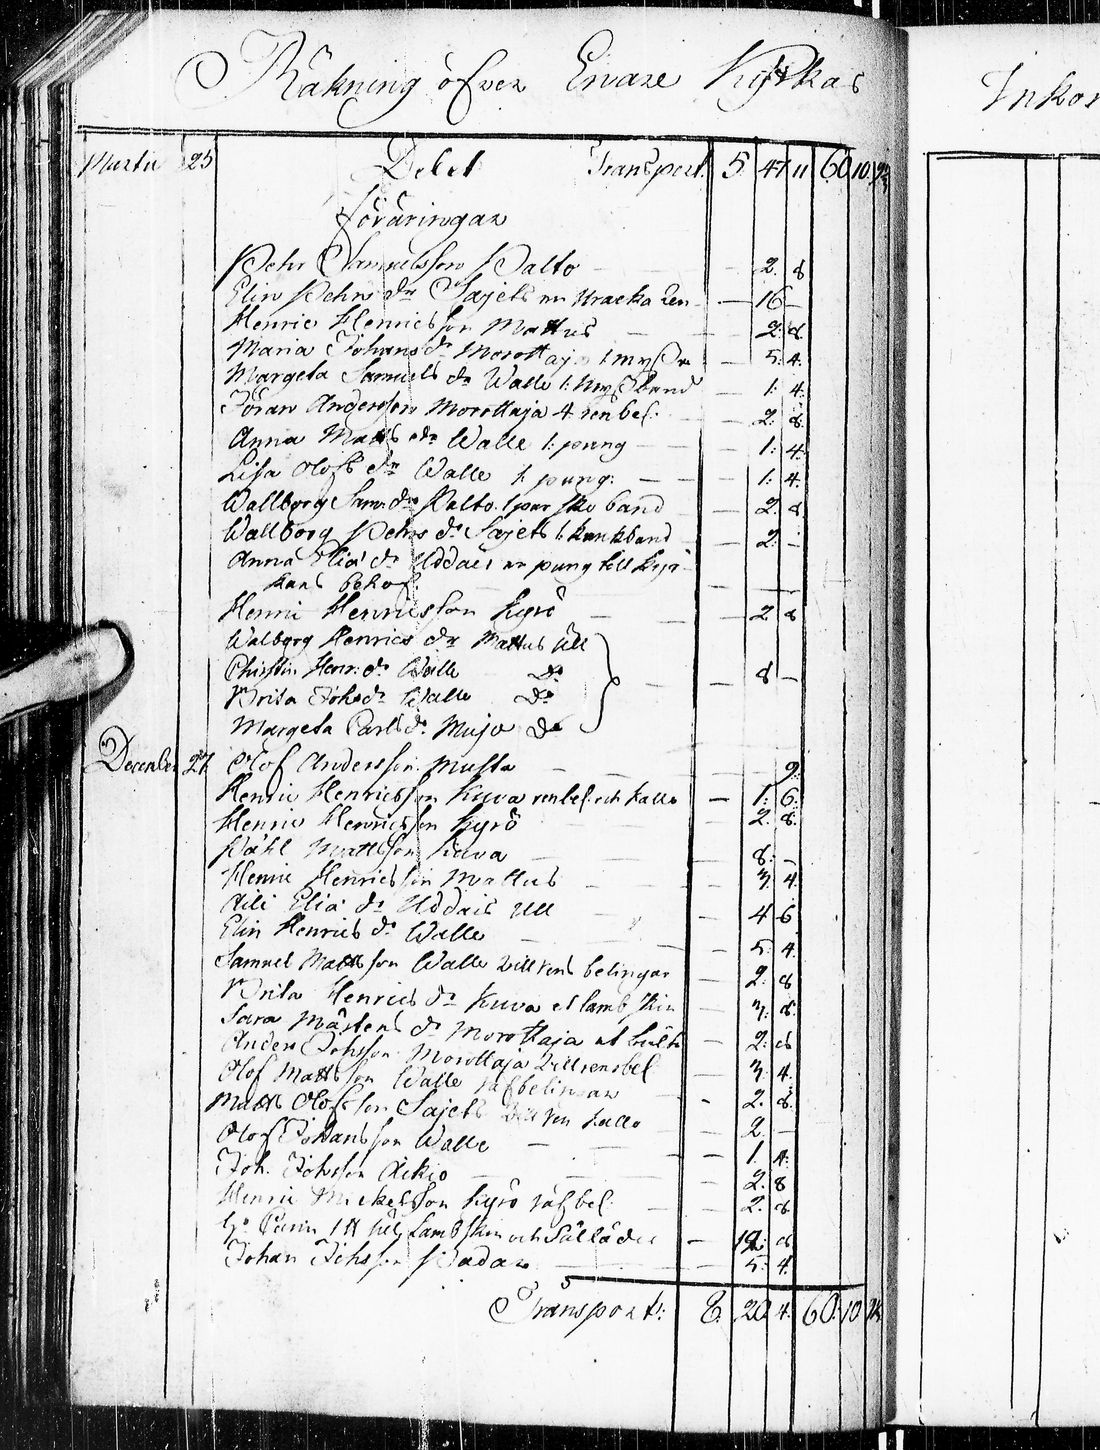 Räkning öfver Enare Kyrkas
Inkom
Martii 25 Debet Transport. 5 47 11 60 10
Föräringar
Pehr Samuelsson Palto — 2. 8
Elin Pehrs dr Sajets en Uracka Ren — 16 —
Henric Henricsson Mattus — 2. 8.
Maria Johans dr Morottaja 1 — 5. 4.
Margeta Samuels dr Walle 1. band — 1. 4.
Jöran Andersson Morottaja 4 renbel: — 2. 8.
Anna Matts dr Walle 1: pung — 1. 4.
Lisa Olofs dr Walle 1 pung: — 1. 4.
Wallborg Sam. dr Palto. 1 par sko band — 2. 8.
Wallborg Pehrs dr Sajets band — 2. —
Anna Elia dr Uddais en pung till kyr-
kans behof — —
Henric Henricsson Kyrö — 2 8
Walborg Henrics dr Mattus Ull
Christin Henr. dr Walle Do
Brita Johs dr Walle Do — 8 —
Margeta Carls dr Mujo Do
December 27 Olof Andersson Musta — 9.
Henric Henricsson Kuva renbel. och kallo — 1. 6.
Henric Henricsson Kyrö — 2. 8.
Påhl Mattsson Kuva — 8. —
Henric Henricsson Mattus — 3. 4.
Aili Elia dr Uddais Ull — 4 6
Elin Henrics dr Walle — 5. 4.
Samuel Mattsson Walle Vill rens belingar — 2. 8
Brita Henrics dr Kuva et lamb skin — 3. 8.
Sara Mårtens dr Morottaja et — 2. 8
Anders Johsson Morottaja Vill rensbel — 3. 4.
Olof Mattsson Walle räfbelingar — 2. 8.
Matts Olofsson Sajets Vill ren kallo — 2 —
Olof Johansson Walle — 1. 4.
Joh. Johsson Aikio — 2. 8
Henric Mickelsson Kyrö räfbel: — 2. 8
Lambskin och — 12. 8
Johan Johsson Padar — 5. 4.
Transport: 8. 20 4. 60. 10